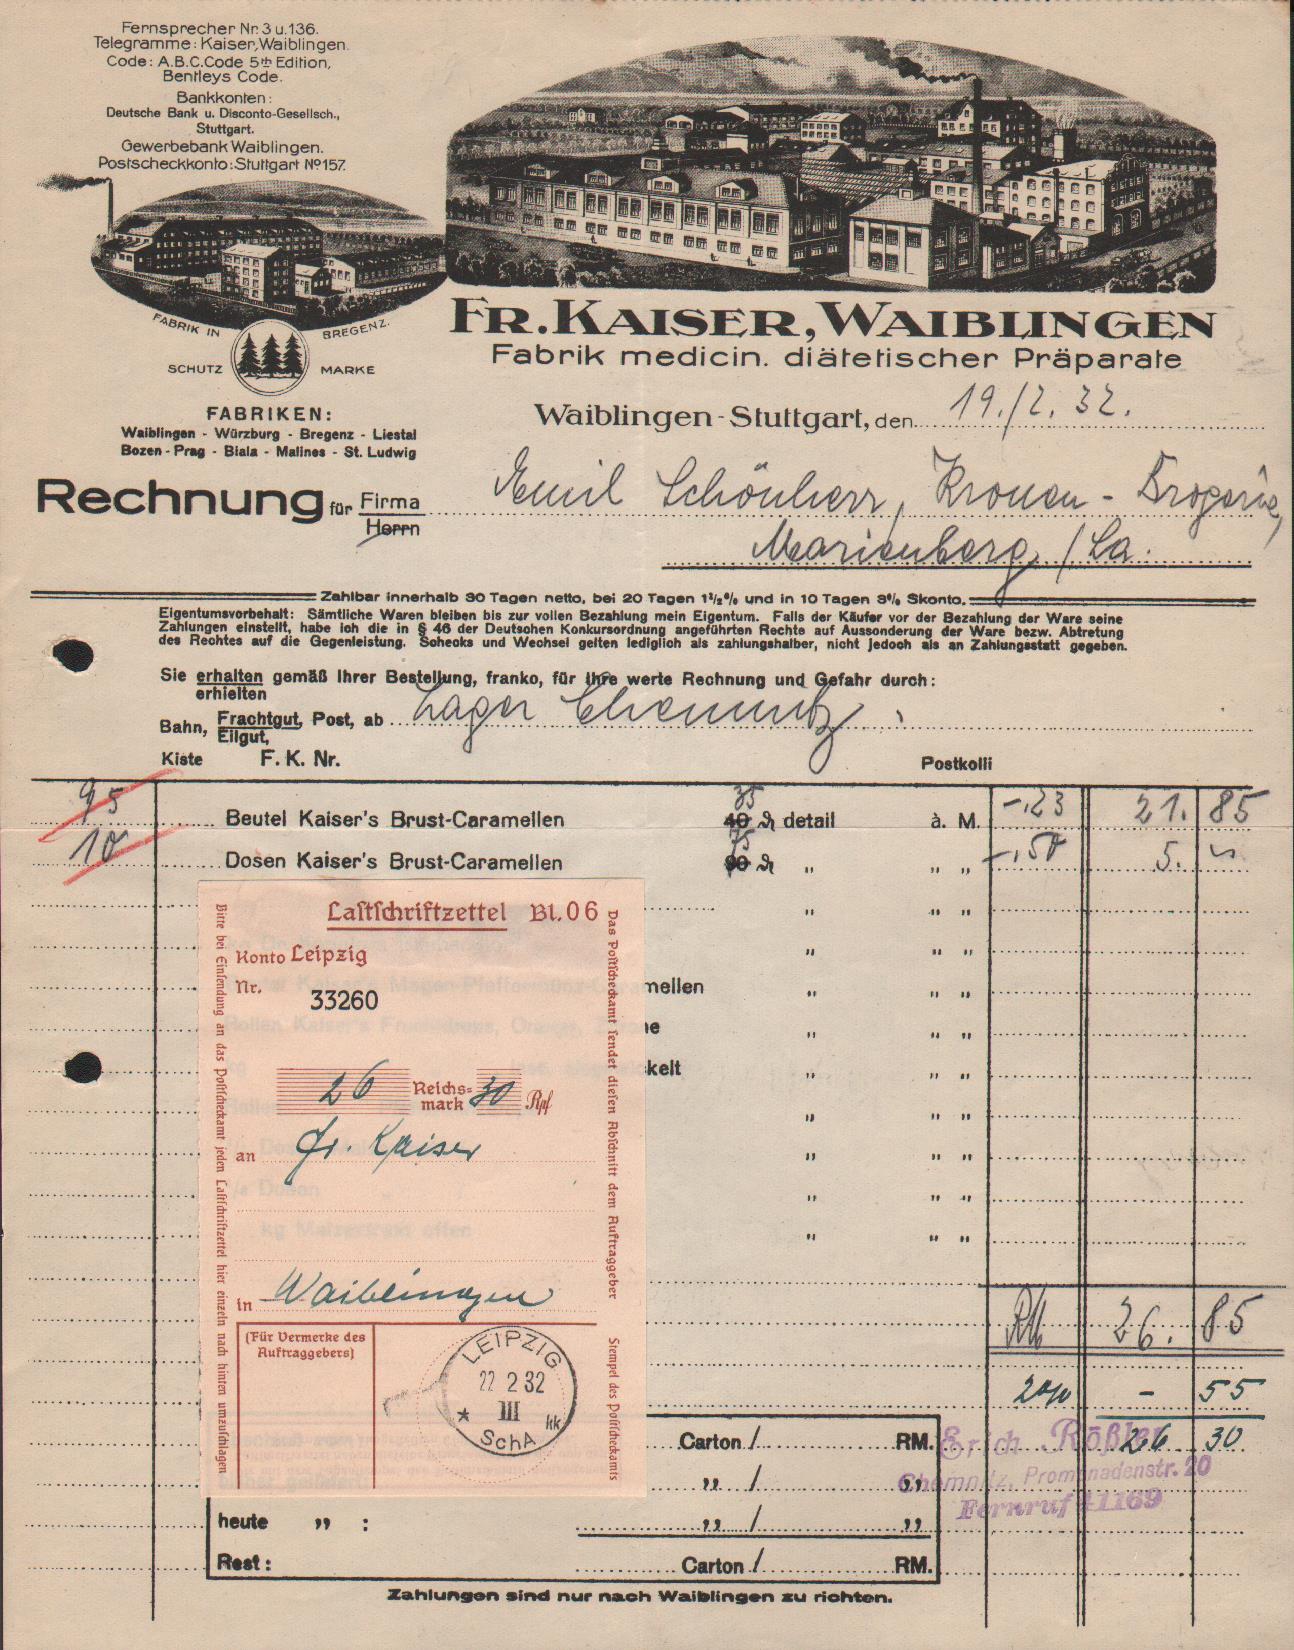 Fernsprecher Nr. 3 u. 136.
Telegramme: Kaiser, Waiblingen.
Code: A.B.C. Code 5th Edition,
Bentleys Code.
Bankkonten:
Deutsche Bank u. Disconto-Gesellsch.,
Stuttgart.
Gewerbebank Waiblingen.
Postscheckkonto: Stuttgart No 157.
FABRIK IN BREGENZ.
SCHUTZ MARKE
FR. KAISER, WAIBLINGEN
Fabrik medicin. diätetischer Präparate
FABRIKEN:
Waiblingen - Würzburg - Bregenz - Liestal
Bozen - Prag - Biala - Malines - St. Ludwig
Waiblingen-Stuttgart, den 19./2. 32.
Rechnung für Firma Emil Schönherr, Kronen-Drogerie,
Herrn
Marienberg / Sa.
Zahlbar innerhalb 30 Tagen netto, bei 20 Tagen 1½% und in 10 Tagen 3% Skonto.
Eigentumsvorbehalt: Sämtliche Waren bleiben bis zur vollen Bezahlung mein Eigentum. Falls der Käufer vor der Bezahlung der Ware seine
Zahlungen einstellt, habe ich die in § 46 der Deutschen Konkursordnung angeführten Rechte auf Aussonderung der Ware bezw. Abtretung
des Rechtes auf die Gegenleistung. Schecks und Wechsel gelten lediglich als zahlungshalber, nicht jedoch als an Zahlungsstatt gegeben.
Sie erhalten gemäß Ihrer Bestellung, franko, für Ihre werte Rechnung und Gefahr durch:
erhielten
Bahn, Frachtgut, Post, ab Lager Chemnitz.
Eilgut,
Kiste F. K. Nr. Postkolli
95 Beutel Kaiser's Brust-Caramellen 35 40 ₰ detail à. M. -,23 21. 85
10 Dosen Kaiser's Brust-Caramellen 75 80 ₰ „ „ „ -,50 5. ~
„ „ „
„ „ „
mellen „ „ „
ne „ „ „
kelt „ „ „
„ „ „
„ „ „
„ „ „
„ „ „
Lastschriftzettel Bl. 06
Konto Leipzig
Nr. 33260
26 Reichsmark 30 Rpf
an Fr. Kaiser
in Waiblingen
(Für Vermerke des
Auftraggebers)
LEIPZIG
22 2 32
III
* hk
SchA
Bitte bei Einsendung an das Postscheckamt jeden Lastschriftzettel hier einzeln nach hinten umzuschlagen
Das Postscheckamt sendet diesen Abschnitt dem Auftraggeber
Stempel des Postscheckamts
RM 26. 85
2% - 55
26 30
Erich Rößler
Chemnitz, Promenadenstr. 20
Fernruf 41169
Carton / RM.
„ / „
heute „ : „ / „
Rest: Carton / RM.
Zahlungen sind nur nach Waiblingen zu richten.